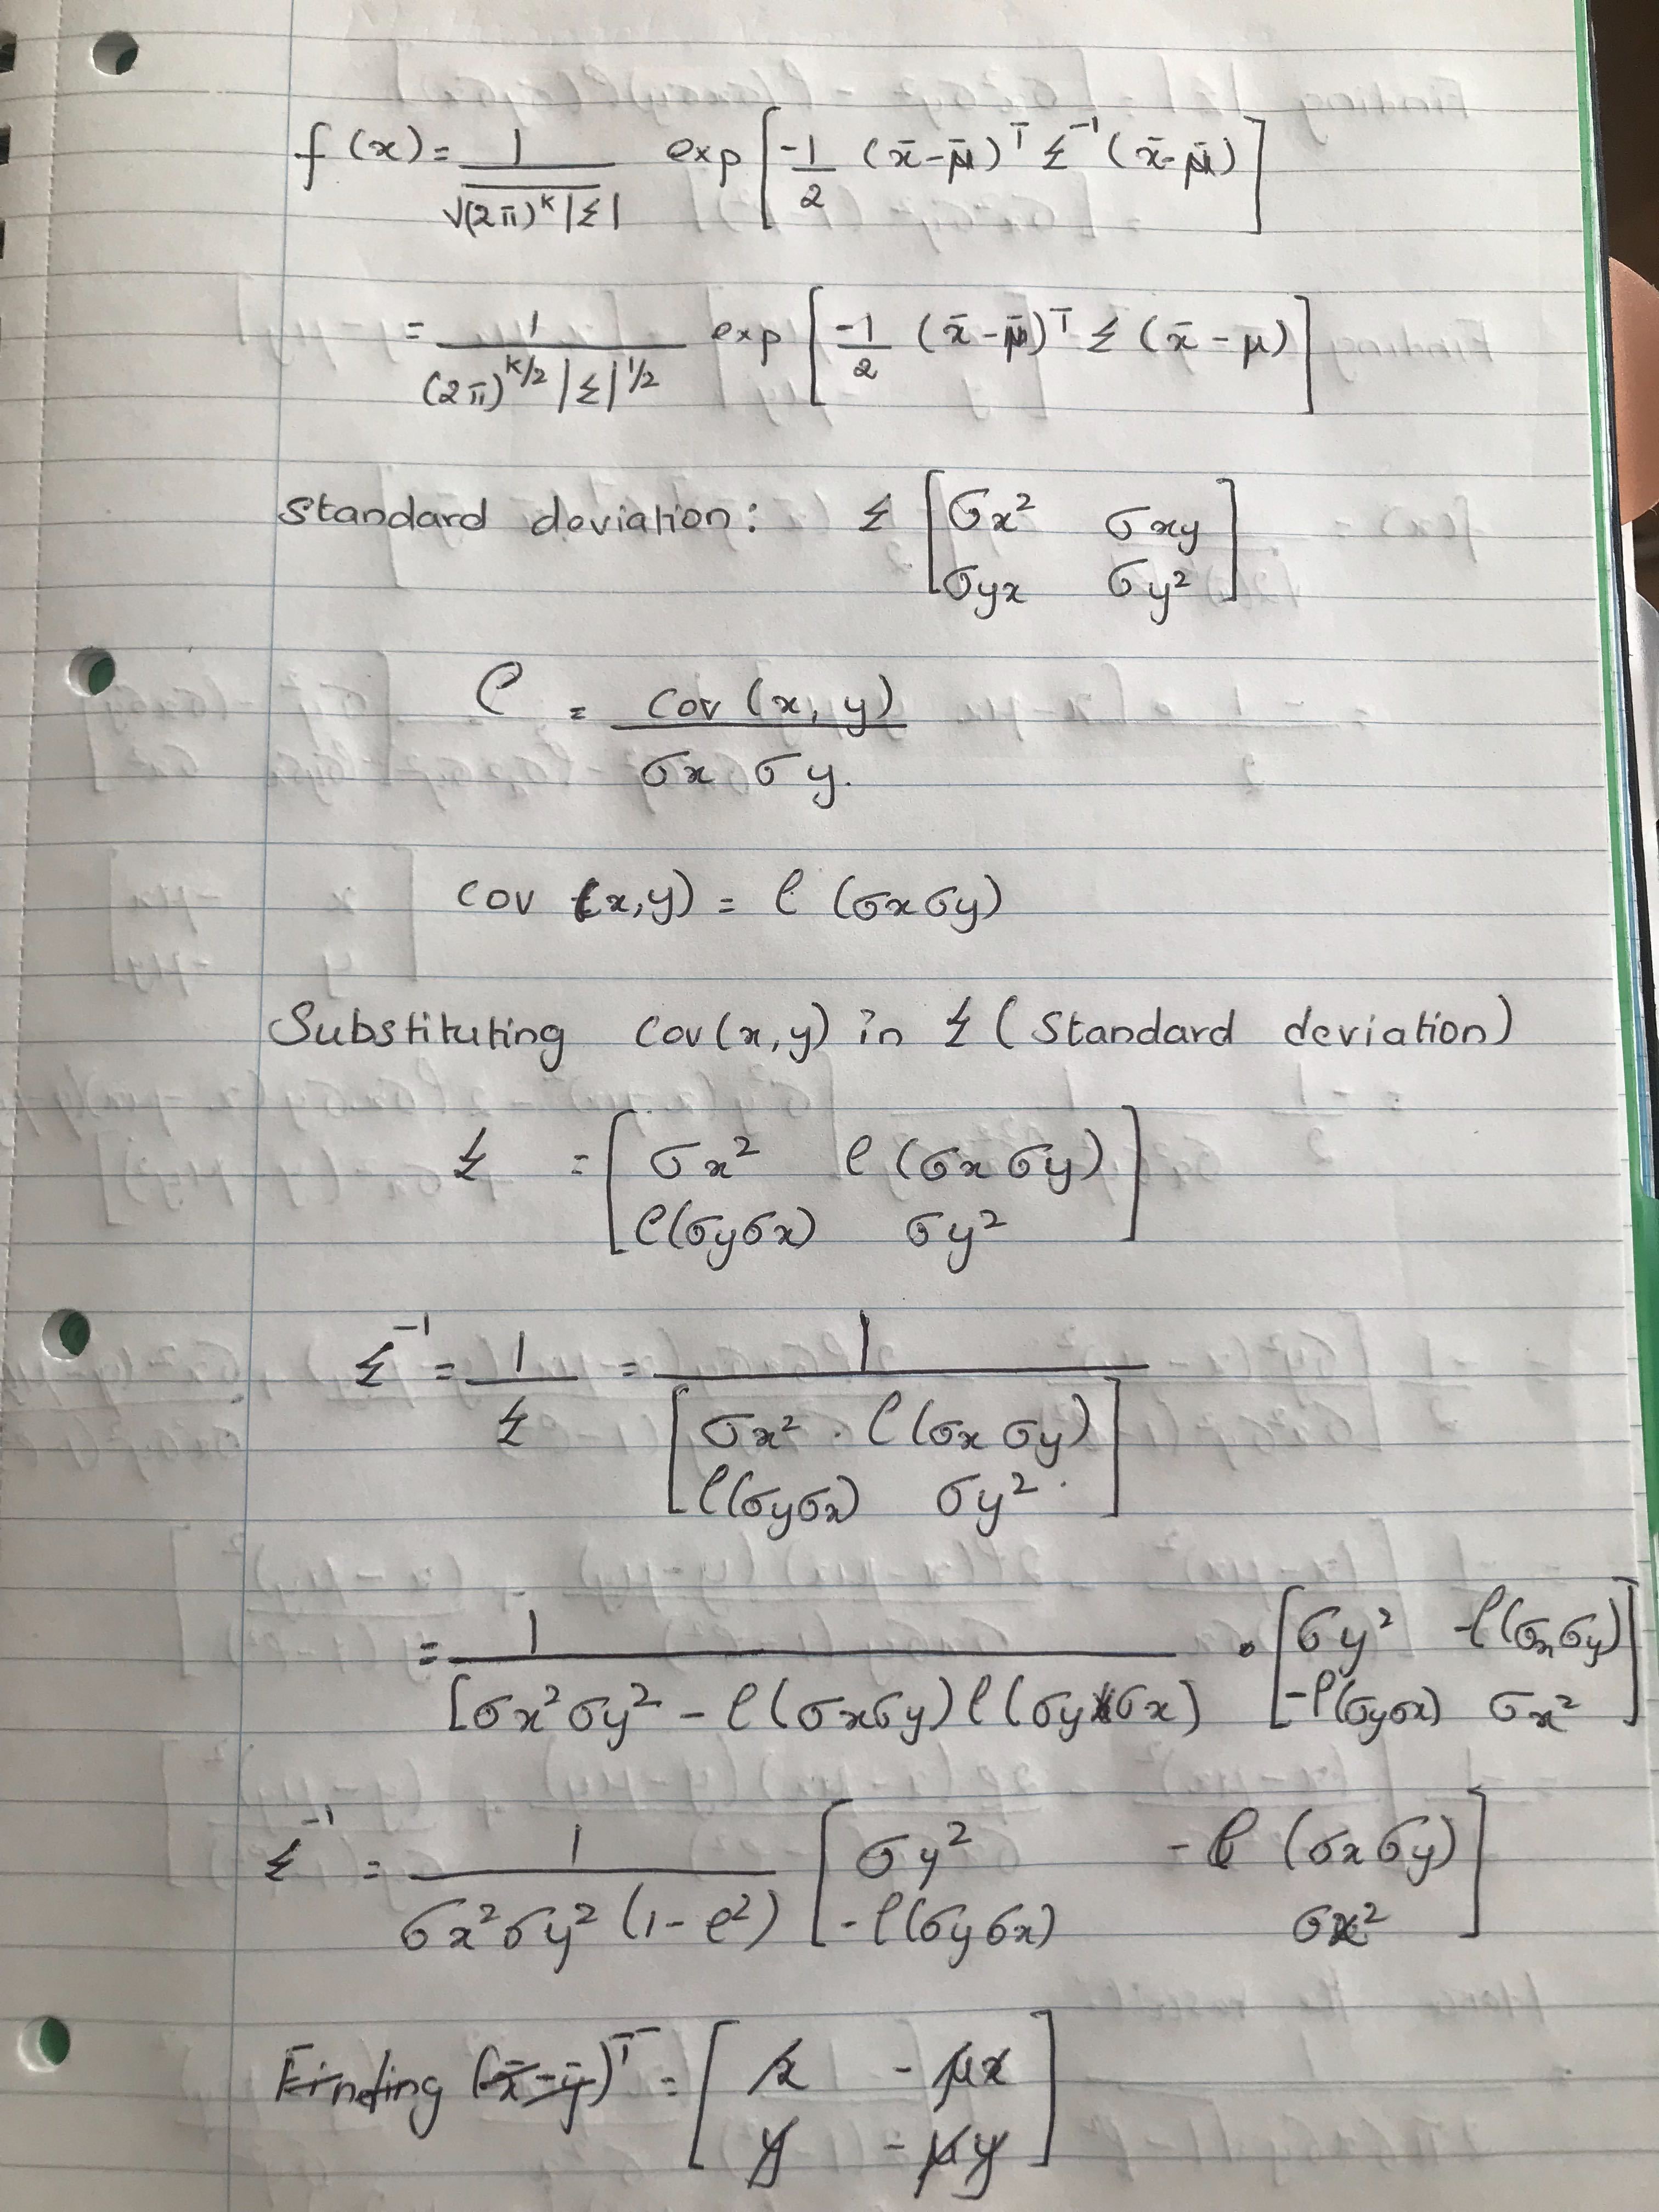 f(x) = 1 / √(2π)^k |Σ| exp [ -1/2 (x̄ - μ̄)^T Σ^-1 (x̄ - μ̄) ]
= 1 / (2π)^k/2 |Σ|^1/2 exp [ -1/2 (x̄ - μ̄)^T Σ (x̄ - μ) ]
Standard deviation: Σ [ σx² σxy
σyx σy² ]
ρ = cov (x, y) / σx σy.
cov (x,y) = ρ (σxσy)
Substituting cov(x,y) in Σ (Standard deviation)
Σ = [ σx² ρ(σx σy)
ρ(σyσx) σy² ]
Σ^-1 = 1 / Σ = 1 / [ σx² · ρ(σx σy)
ρ(σyσx) σy² · ]
= 1 / [σx²σy² - ρ(σxσy)ρ(σyσx) • [ σy² -ρ(σxσy)
-ρ(σyσx) σx² ]
Σ^-1 = 1 / σx²σy² (1-ρ²) [ σy² -ρ (σxσy)
-ρ(σyσx) σx² ]
Finding (x̄-ȳ)^T = [ x - μx
y - μy ]